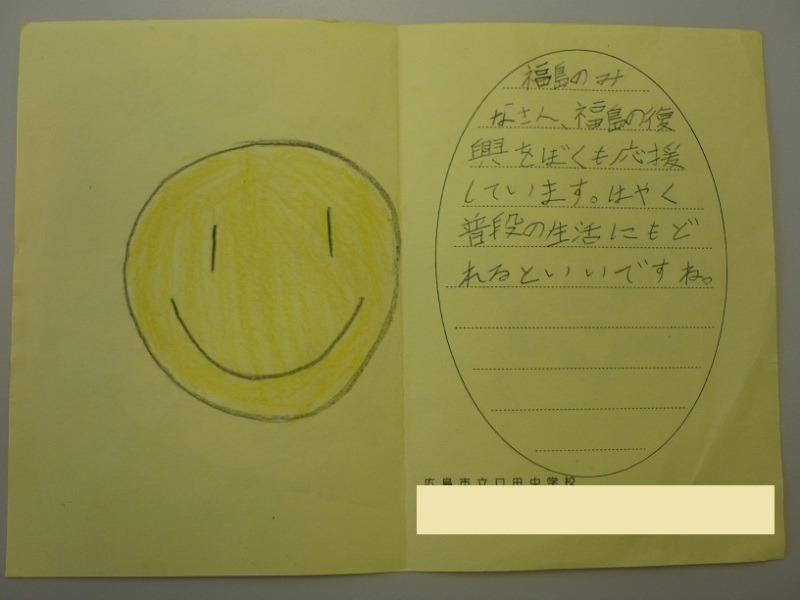 福島のみ
なさん、福島の復
興をぼくも応援
しています。はやく
普段の生活にもど
れるといいですね。
広島市立口田中学校